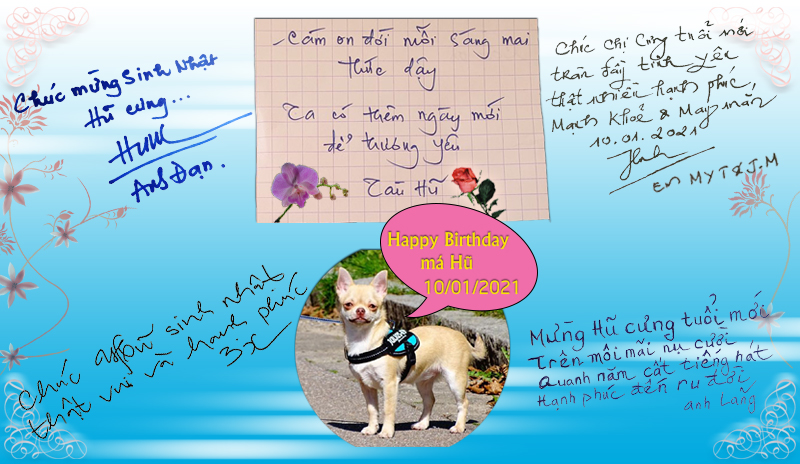 Chúc mừng Sinh Nhật
Hũ cưng...
Anh Đạn.
Cám ơn đời mỗi sáng mai
thức dậy
Ta có thêm ngày mới
để thương yêu
Tàu Hũ
Chúc chị Cưng tuổi mới
tràn đầy tình yêu
thật nhiều hạnh phúc,
Mạnh Khoẻ & May mắn
10.01.2021
Em MYT & J.M
Happy Birthday
má Hũ
10/01/2021
Chúc sinh nhật
thật vui và hạnh phúc
Mừng Hũ cưng tuổi mới
Trên môi mãi nụ cười
Quanh năm cất tiếng hát
Hạnh phúc đến ru đời
anh Lãng